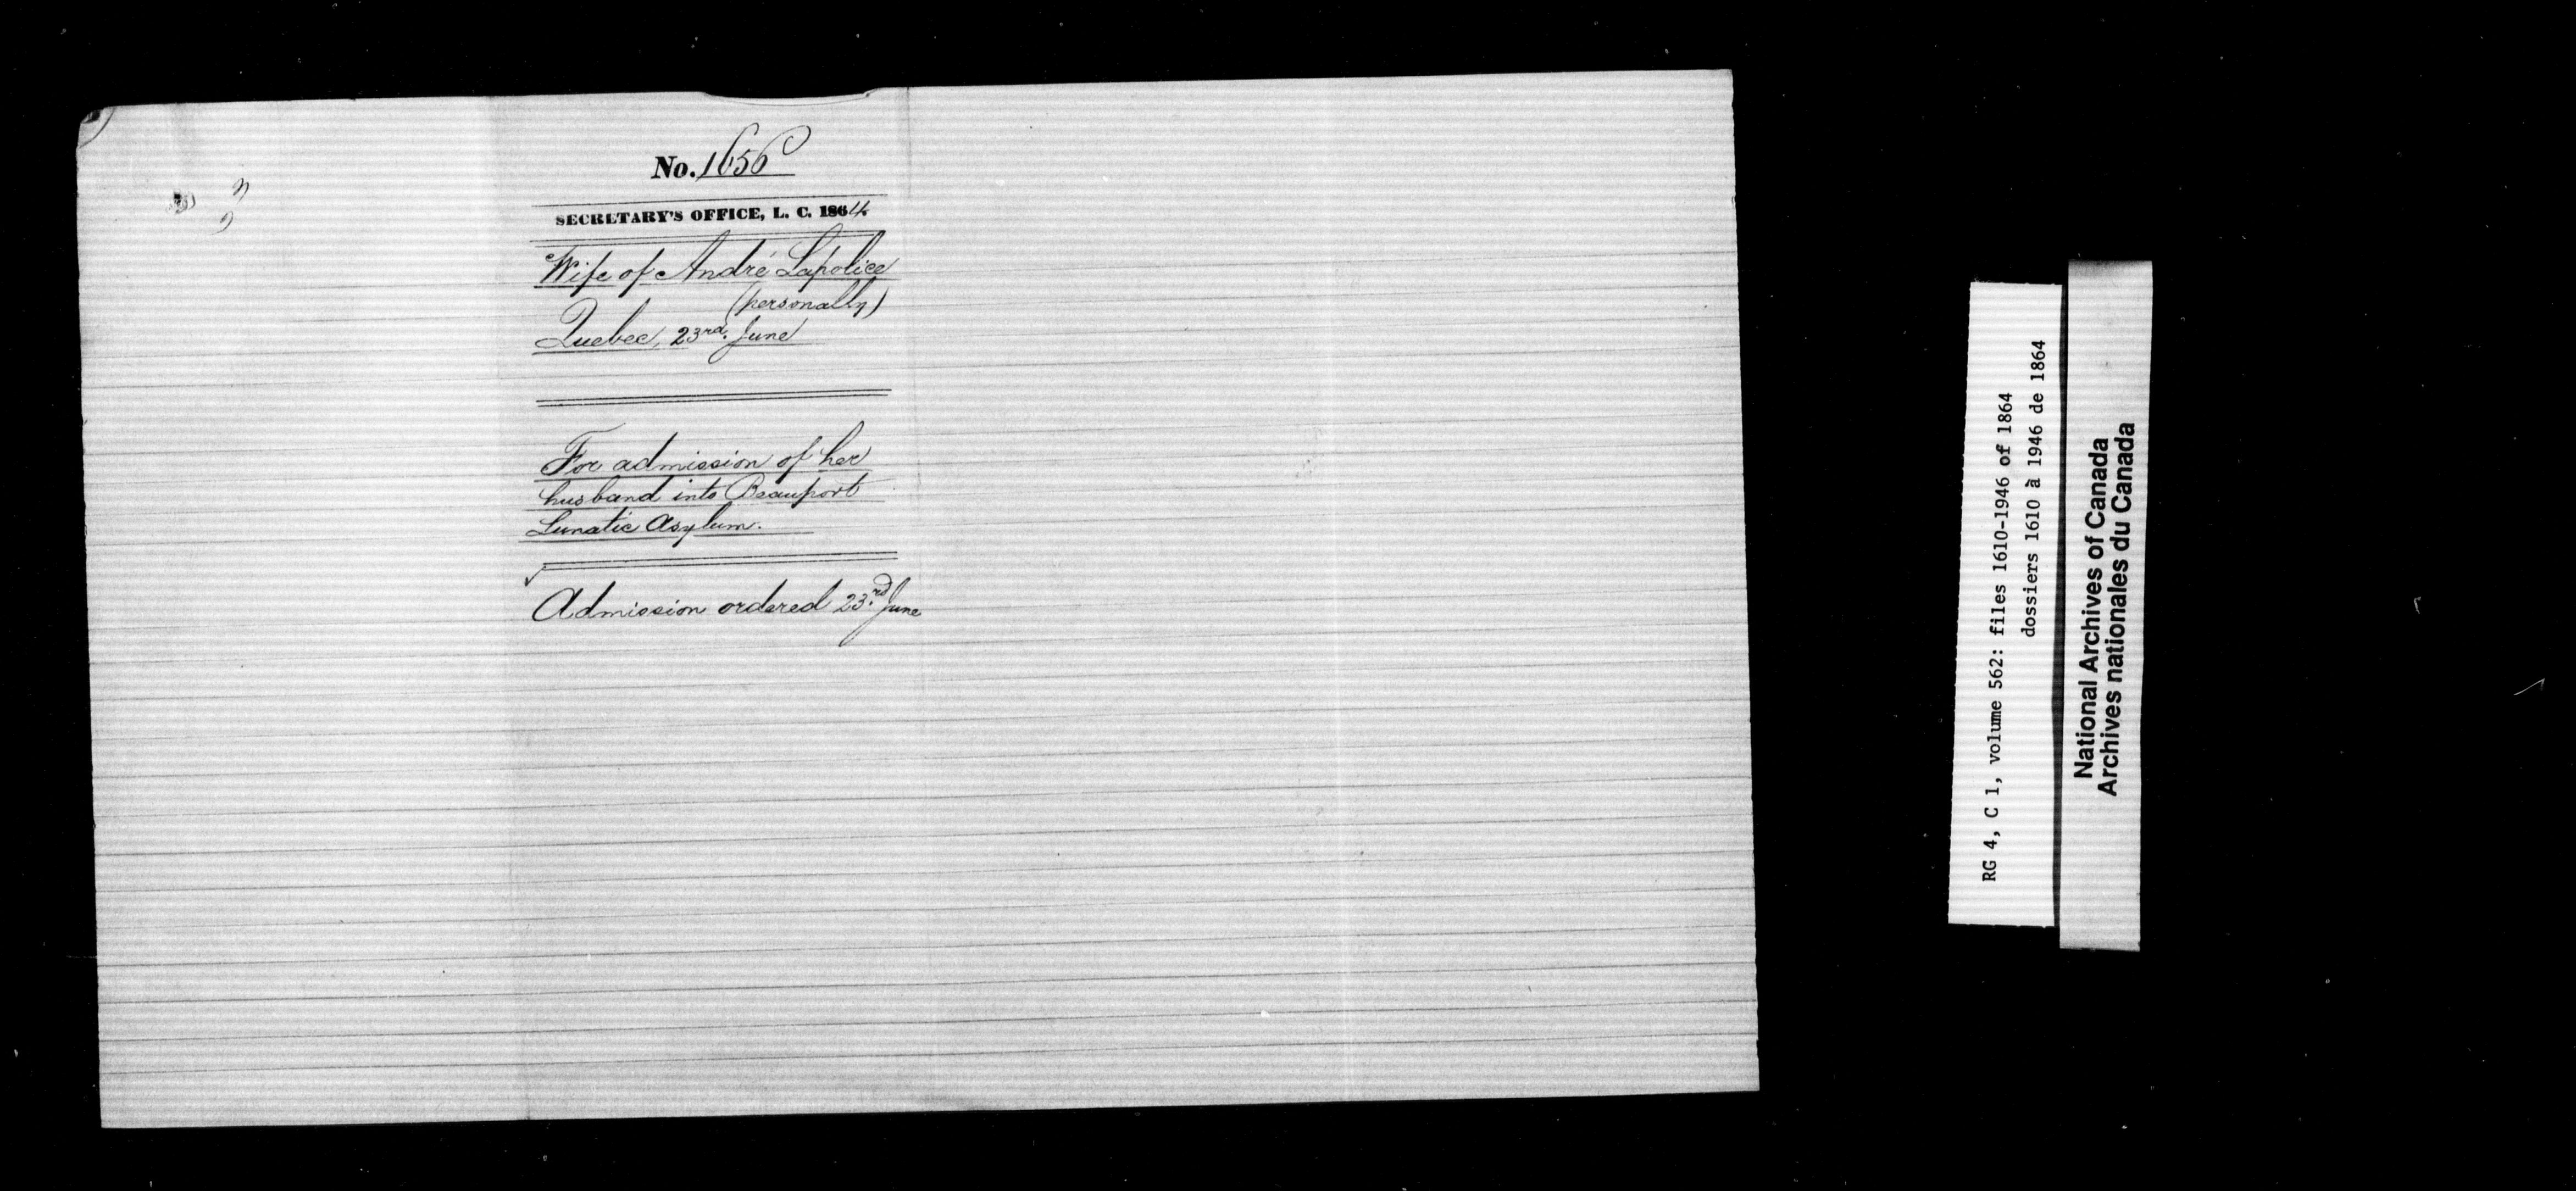 No. 1656
SECRETARY'S OFFICE, L. C. 1864
Wife of André Lapolice
(personally)
Quebec, 23rd. June
For admission of her
husband into Beauport
Lunatic Asylum.
Admission ordered 23rd. June
RG 4, C 1, volume 562: files 1610-1946 of 1864
dossiers 1610 à 1946 de 1864
National Archives of Canada
Archives nationales du Canada